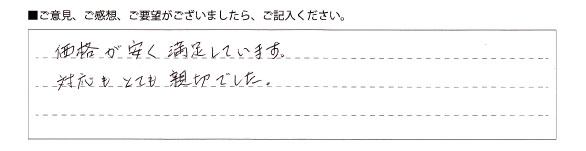 ■ご意見、ご感想、ご要望がございましたら、ご記入ください。
価格が安く満足しています。
対応もとても親切でした。